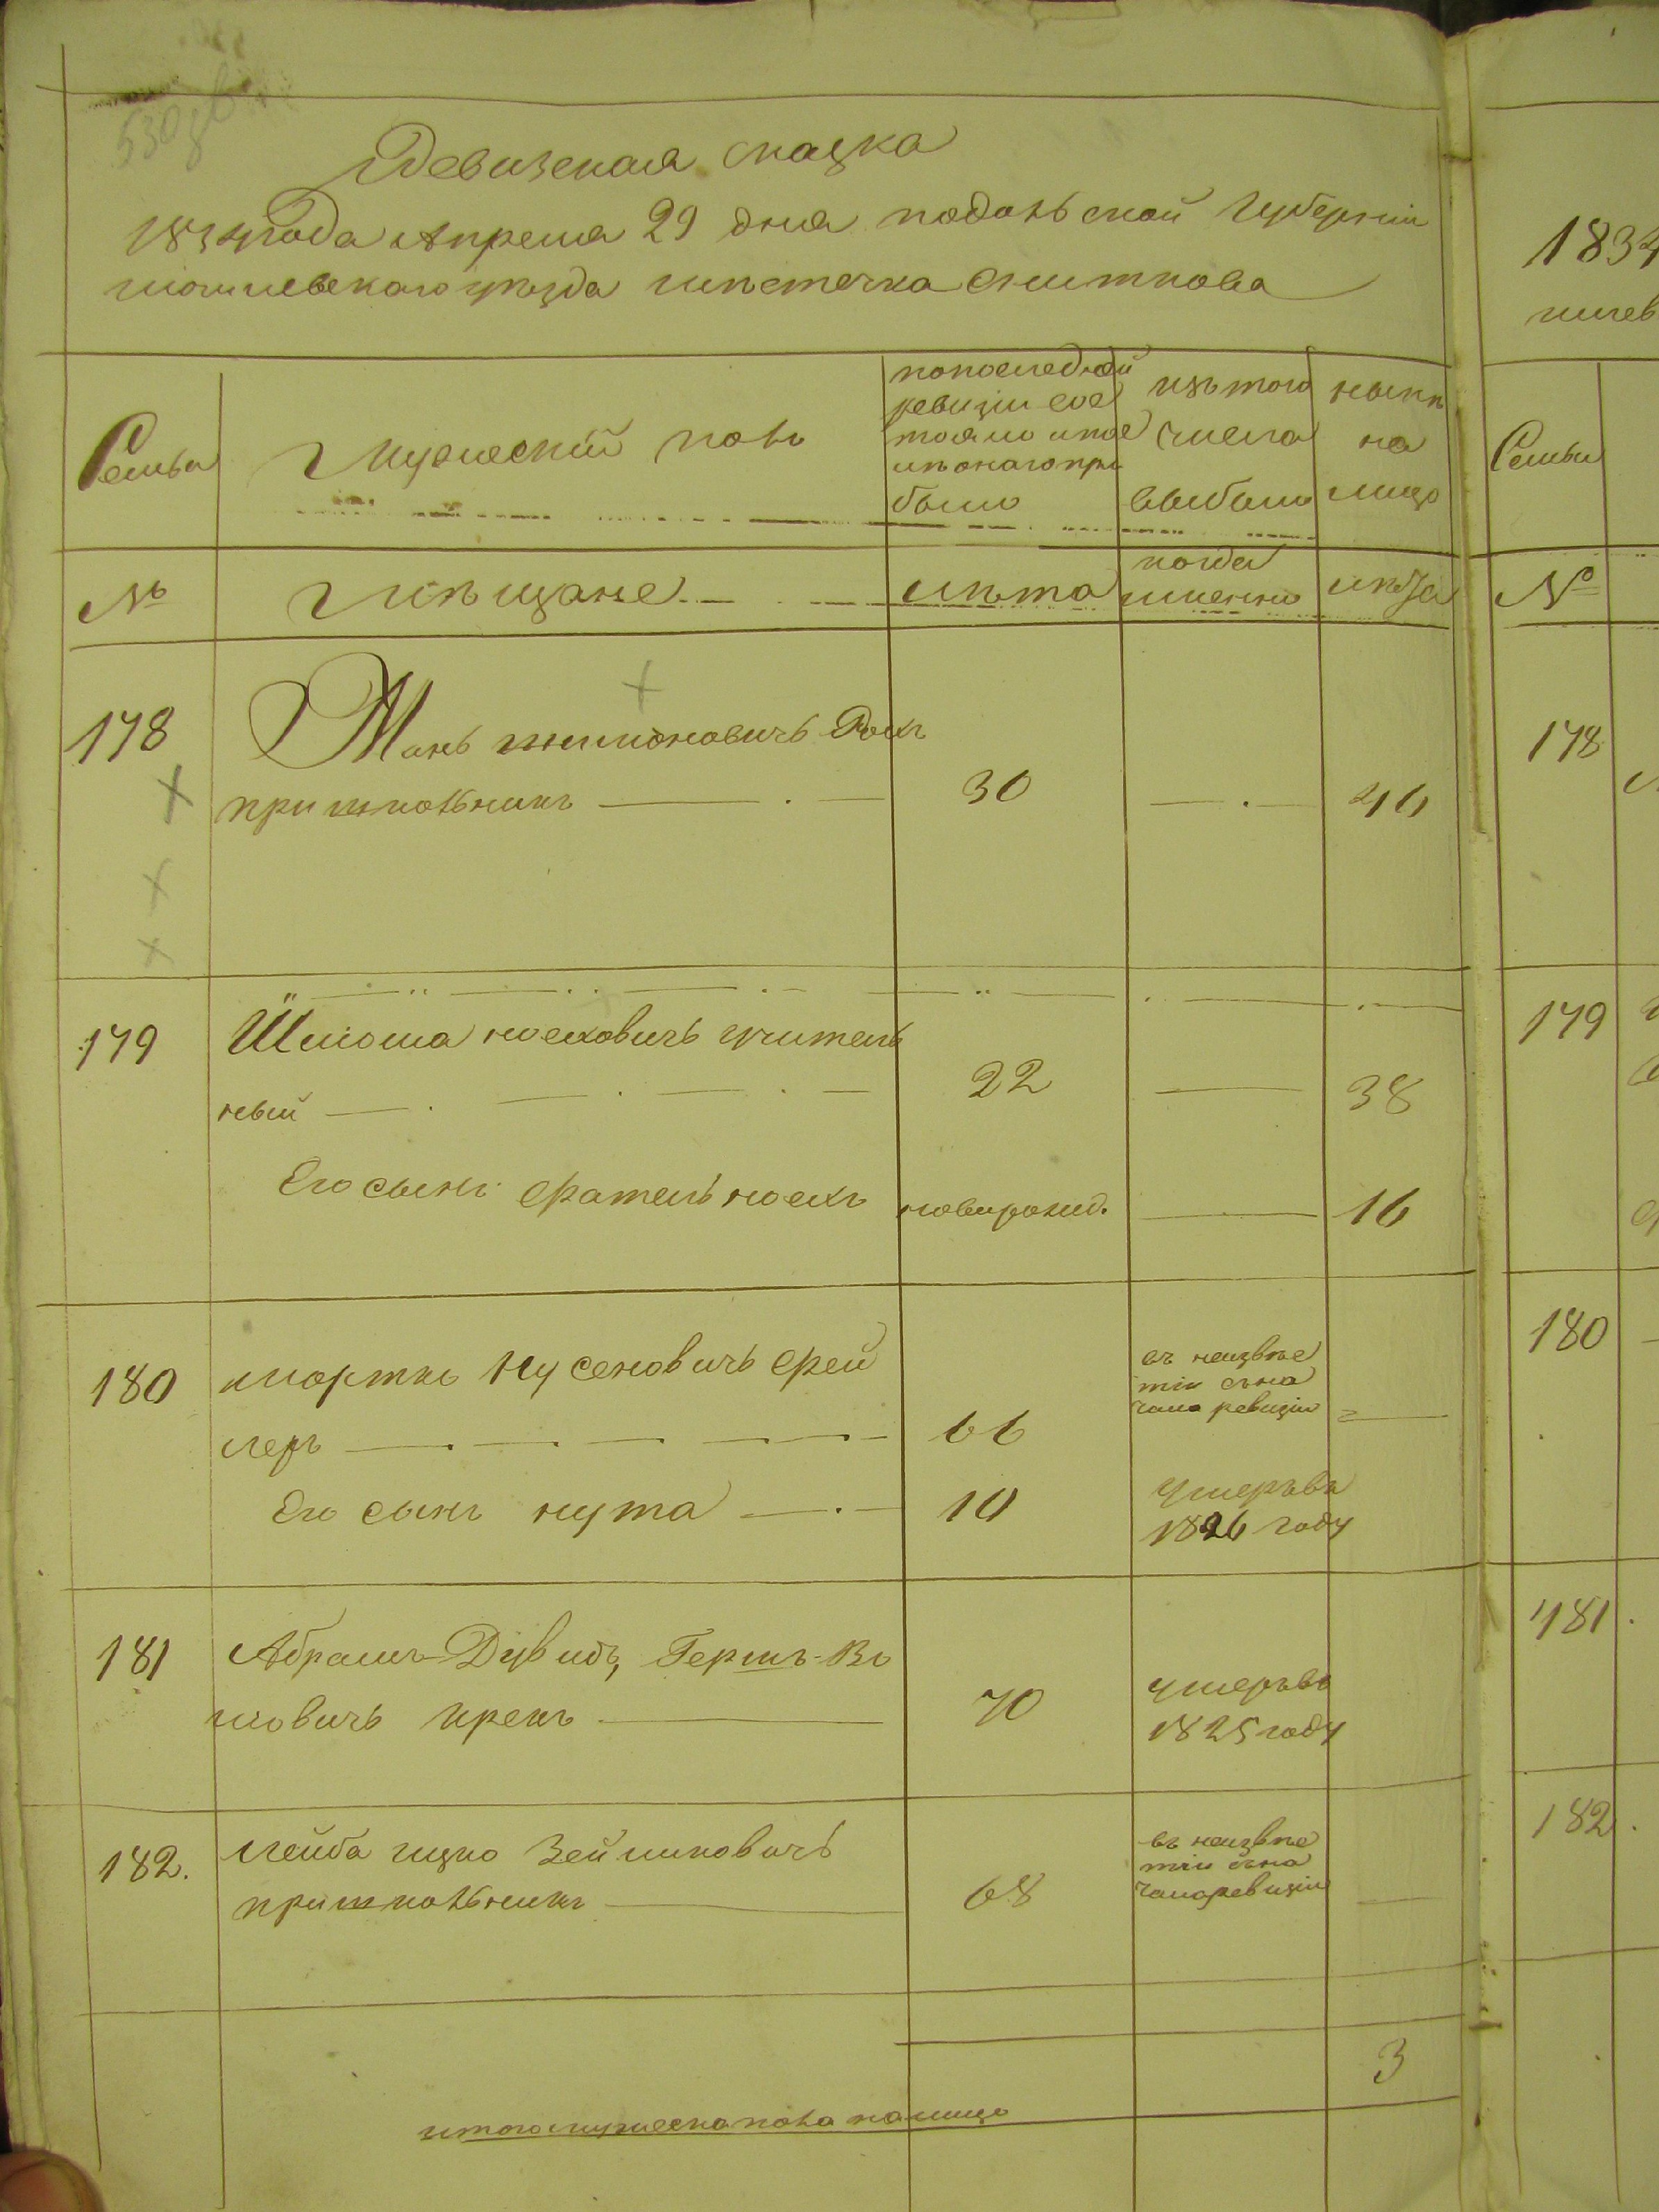 Ревизская сказка
1834 года Апреля 29 дня подольской губерніи
могилевского уезда местечка Сниткова
Семьи
Мужеский полъ
попоследней
ревизіи сос
тояло и посе
ле онаго при
было
изъ того
числа
выбыло
ныне
на
лицо
№
Мещане
лета
когда
именно
лета
178
Манъ шлиомовичъ Ройх
30
46
пришкольникъ
179
Шлиома носеховичъ учитель
ный
22
38
Его сынъ сратель носехъ
новорожд.
16
180
мортко Нусеновичъ срей
леръ
66
въ неизвес
тіи съна
чала ревизіи
Его сынъ нута
10
умеръ въ
1826 году
181
Абрамъ-Дувидъ, Гершъ-Во
ловичъ крекъ
70
умеръ въ
1825 году
182.
лейба ицко Зейликовичъ
пришкольникъ
68
въ неизвес
тіи съна
чала ревизіи
3
итого мужеска пола налицо
1834
гилев
Семьи
№
178
179
180
181.
182.